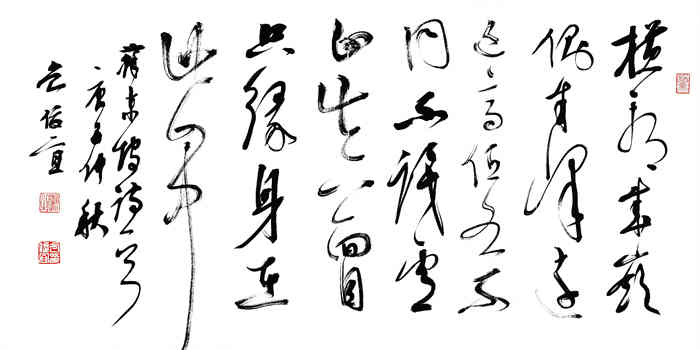 横看成嶺
側成峰遠
近高低各不
同不識廬
山真面目
只緣身在
此山中
蘇東坡詩一首
庚子仲秋